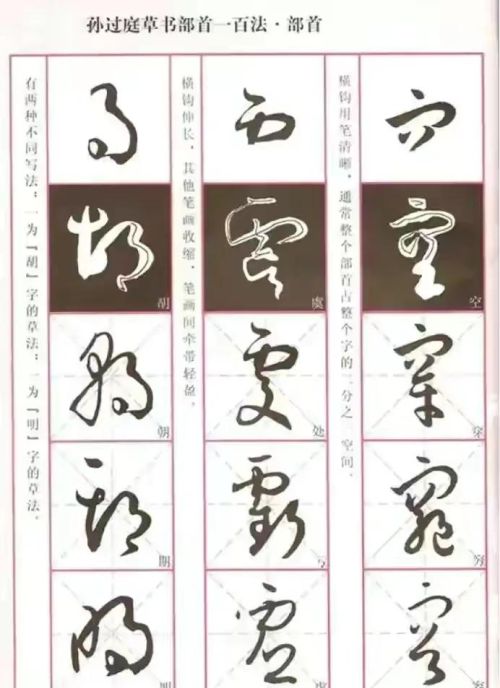 孙过庭草书部首一百法·部首
横钩用笔清晰，通常整个部首占整个字的二分之一空间。
空
穿
穷
横钩伸长，其他笔画收缩，笔画间牵带轻盈。
虞
处
亏
虚
有两种不同写法：一为『胡』字的草法；一为『明』字的草法。
胡
朝
期
明